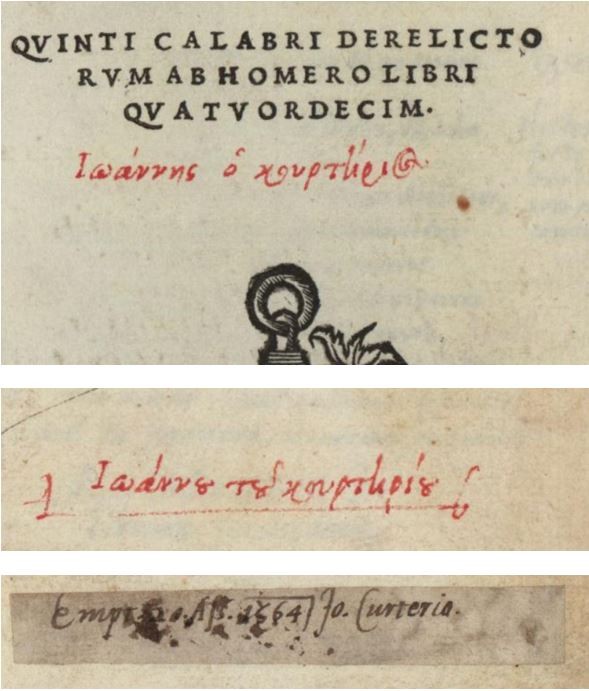 QVINTI CALABRI DERELICTO
RVM AB HOMERO LIBRI
QVATVORDECIM.
Ιωάννης ὁ κουρτήριος
Ιωάννȣ τȣ͂ κουρτηρίȣ
Ass. 1564 Jo. Curterio.